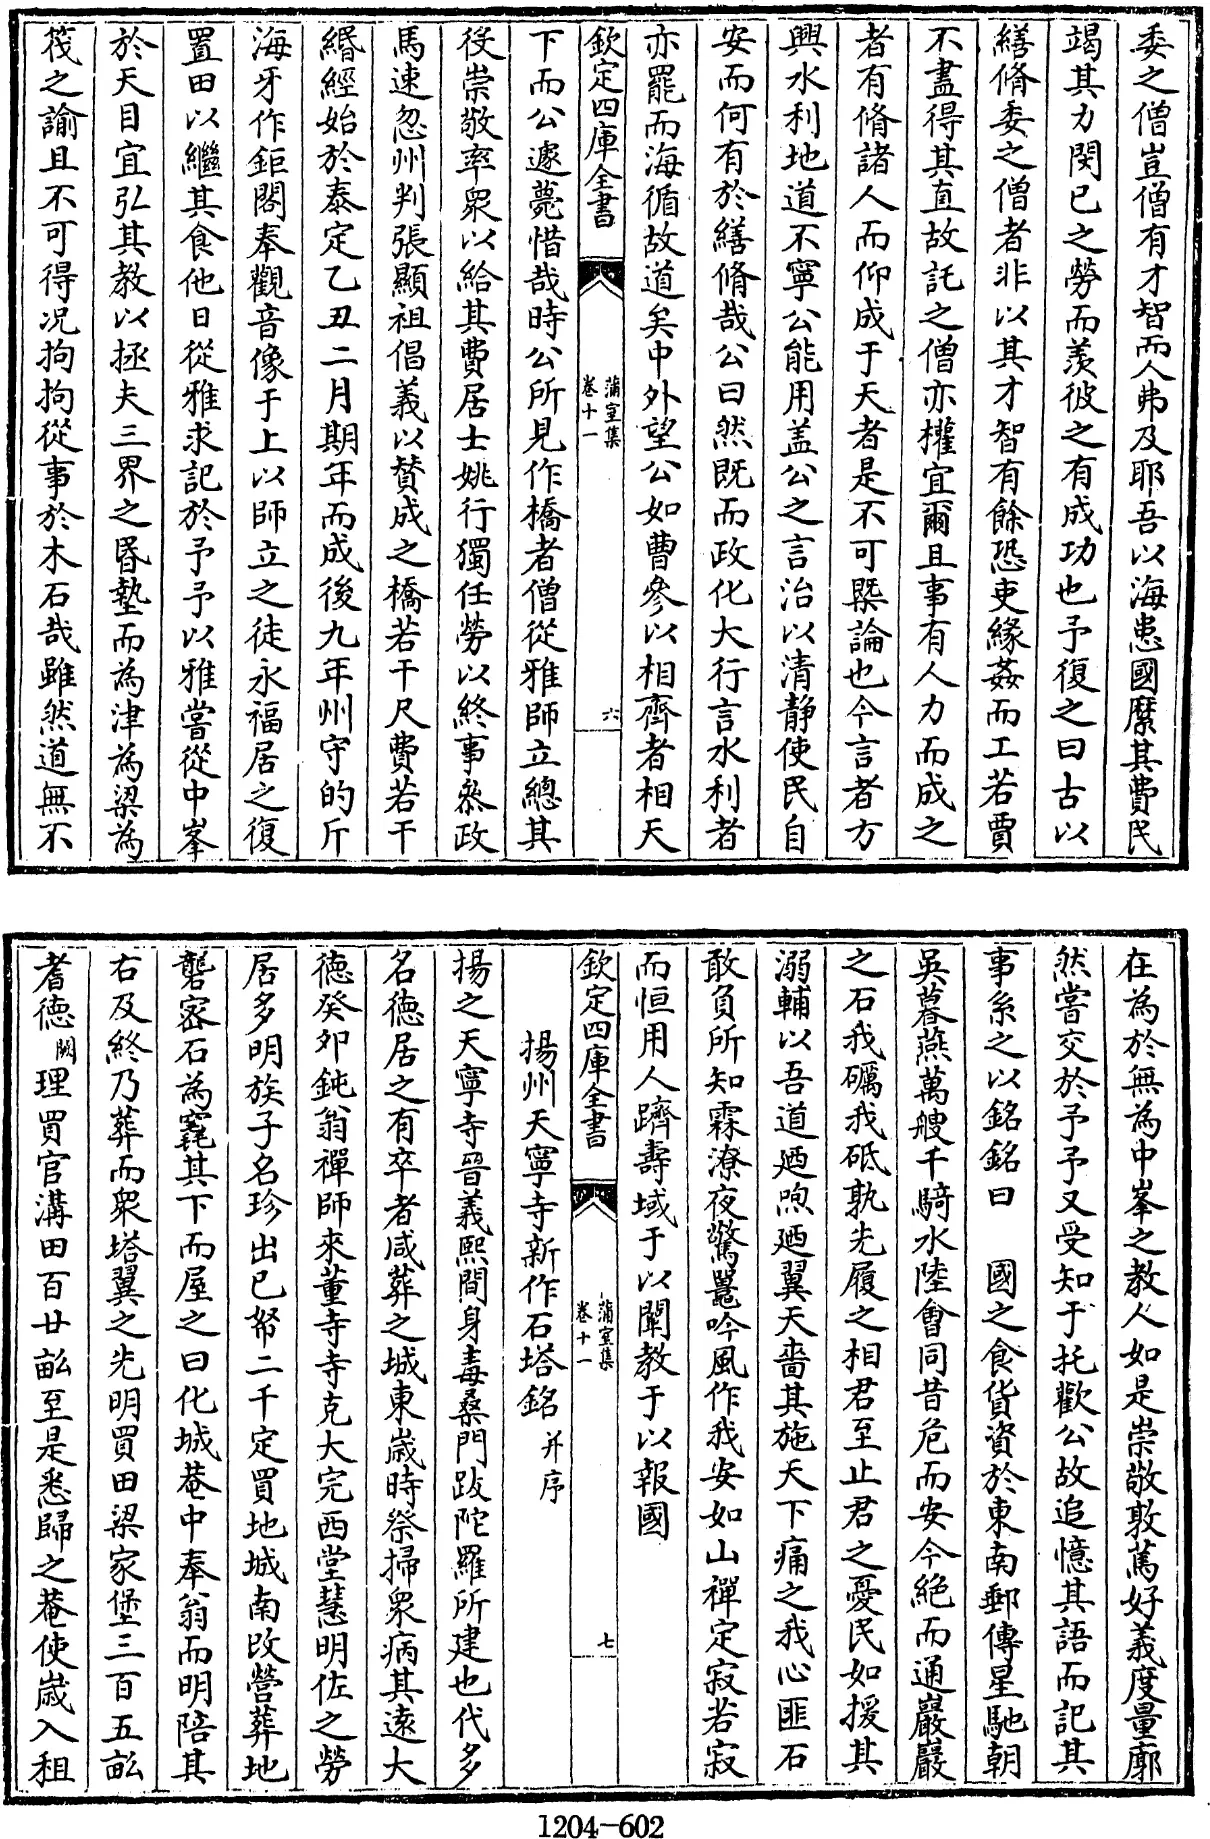 委之僧豈僧有才智而人弗及耶吾以海患國縻其費民
竭其力閔已之勞而羨彼之有成功也予復之曰古以
繕脩委之僧者非以其才智有餘恐吏緣姦而工若賈
不盡得其直故託之僧亦權宜爾且事有人力而成之
者有脩諸人而仰成于天者是不可槩論也今言者方
興水利地道不寧公能用盖公之言治以清静使民自
安而何有於繕脩哉公曰然既而政化大行言水利者
亦罷而海循故道矣中外望公如曹參以相齊者相天
欽定四庫全書
蒲室集
卷十一
六
下而公遽薨惜哉時公所見作橋者僧從雅師立總其
役崇敬率衆以給其費居士姚行獨任勞以終事叅政
馬速忽州判張顯祖倡義以賛成之橋若干尺費若干
緡經始於泰定乙丑二月期年而成後九年州守的斤
海牙作鉅閣奉觀音像于上以師立之徒永福居之復
置田以繼其食他日從雅求記於予予以雅嘗從中峯
於天目宜弘其教以拯夫三界之昬墊而為津為梁為
筏之諭且不可得况拘拘從事於木石哉雖然道無不
在為於無為中峯之教人如是崇敬敦篤好義度量廓
然嘗交於予予又受知于托歡公故追憶其語而記其
事系之以銘銘曰　國之食貨資於東南郵傳星馳朝
吳暮燕萬艘千騎水陸會同昔危而安今絶而通巖巖
之石我礪我砥孰先履之相君至止君之憂民如援其
溺輔以吾道廼喣廼翼天嗇其施天下痛之我心匪石
敢負所知霖潦夜驚鼍吟風作我安如山禪定寂若寂
而恒用人躋壽域于以闡教于以報國
欽定四庫全書
蒲室集
卷十一
七
揚州天寧寺新作石塔銘并序
揚之天寧寺晉義熙間身毒桑門跋陀羅所建也代多
名德居之有卒者咸葬之城東歲時祭掃衆病其遠大
德癸夘鈍翁禪師來董寺寺克大完西堂慧明佐之勞
居多明族子名珍出已帑二千定買地城南改營葬地
礱密石為窽其下而屋之曰化城菴中奉翁而明陪其
右及終乃葬而衆塔翼之先明買田梁家堡三百五畆
耆德闕理買官溝田百廿畆至是悉歸之菴使歲入租
1204-602